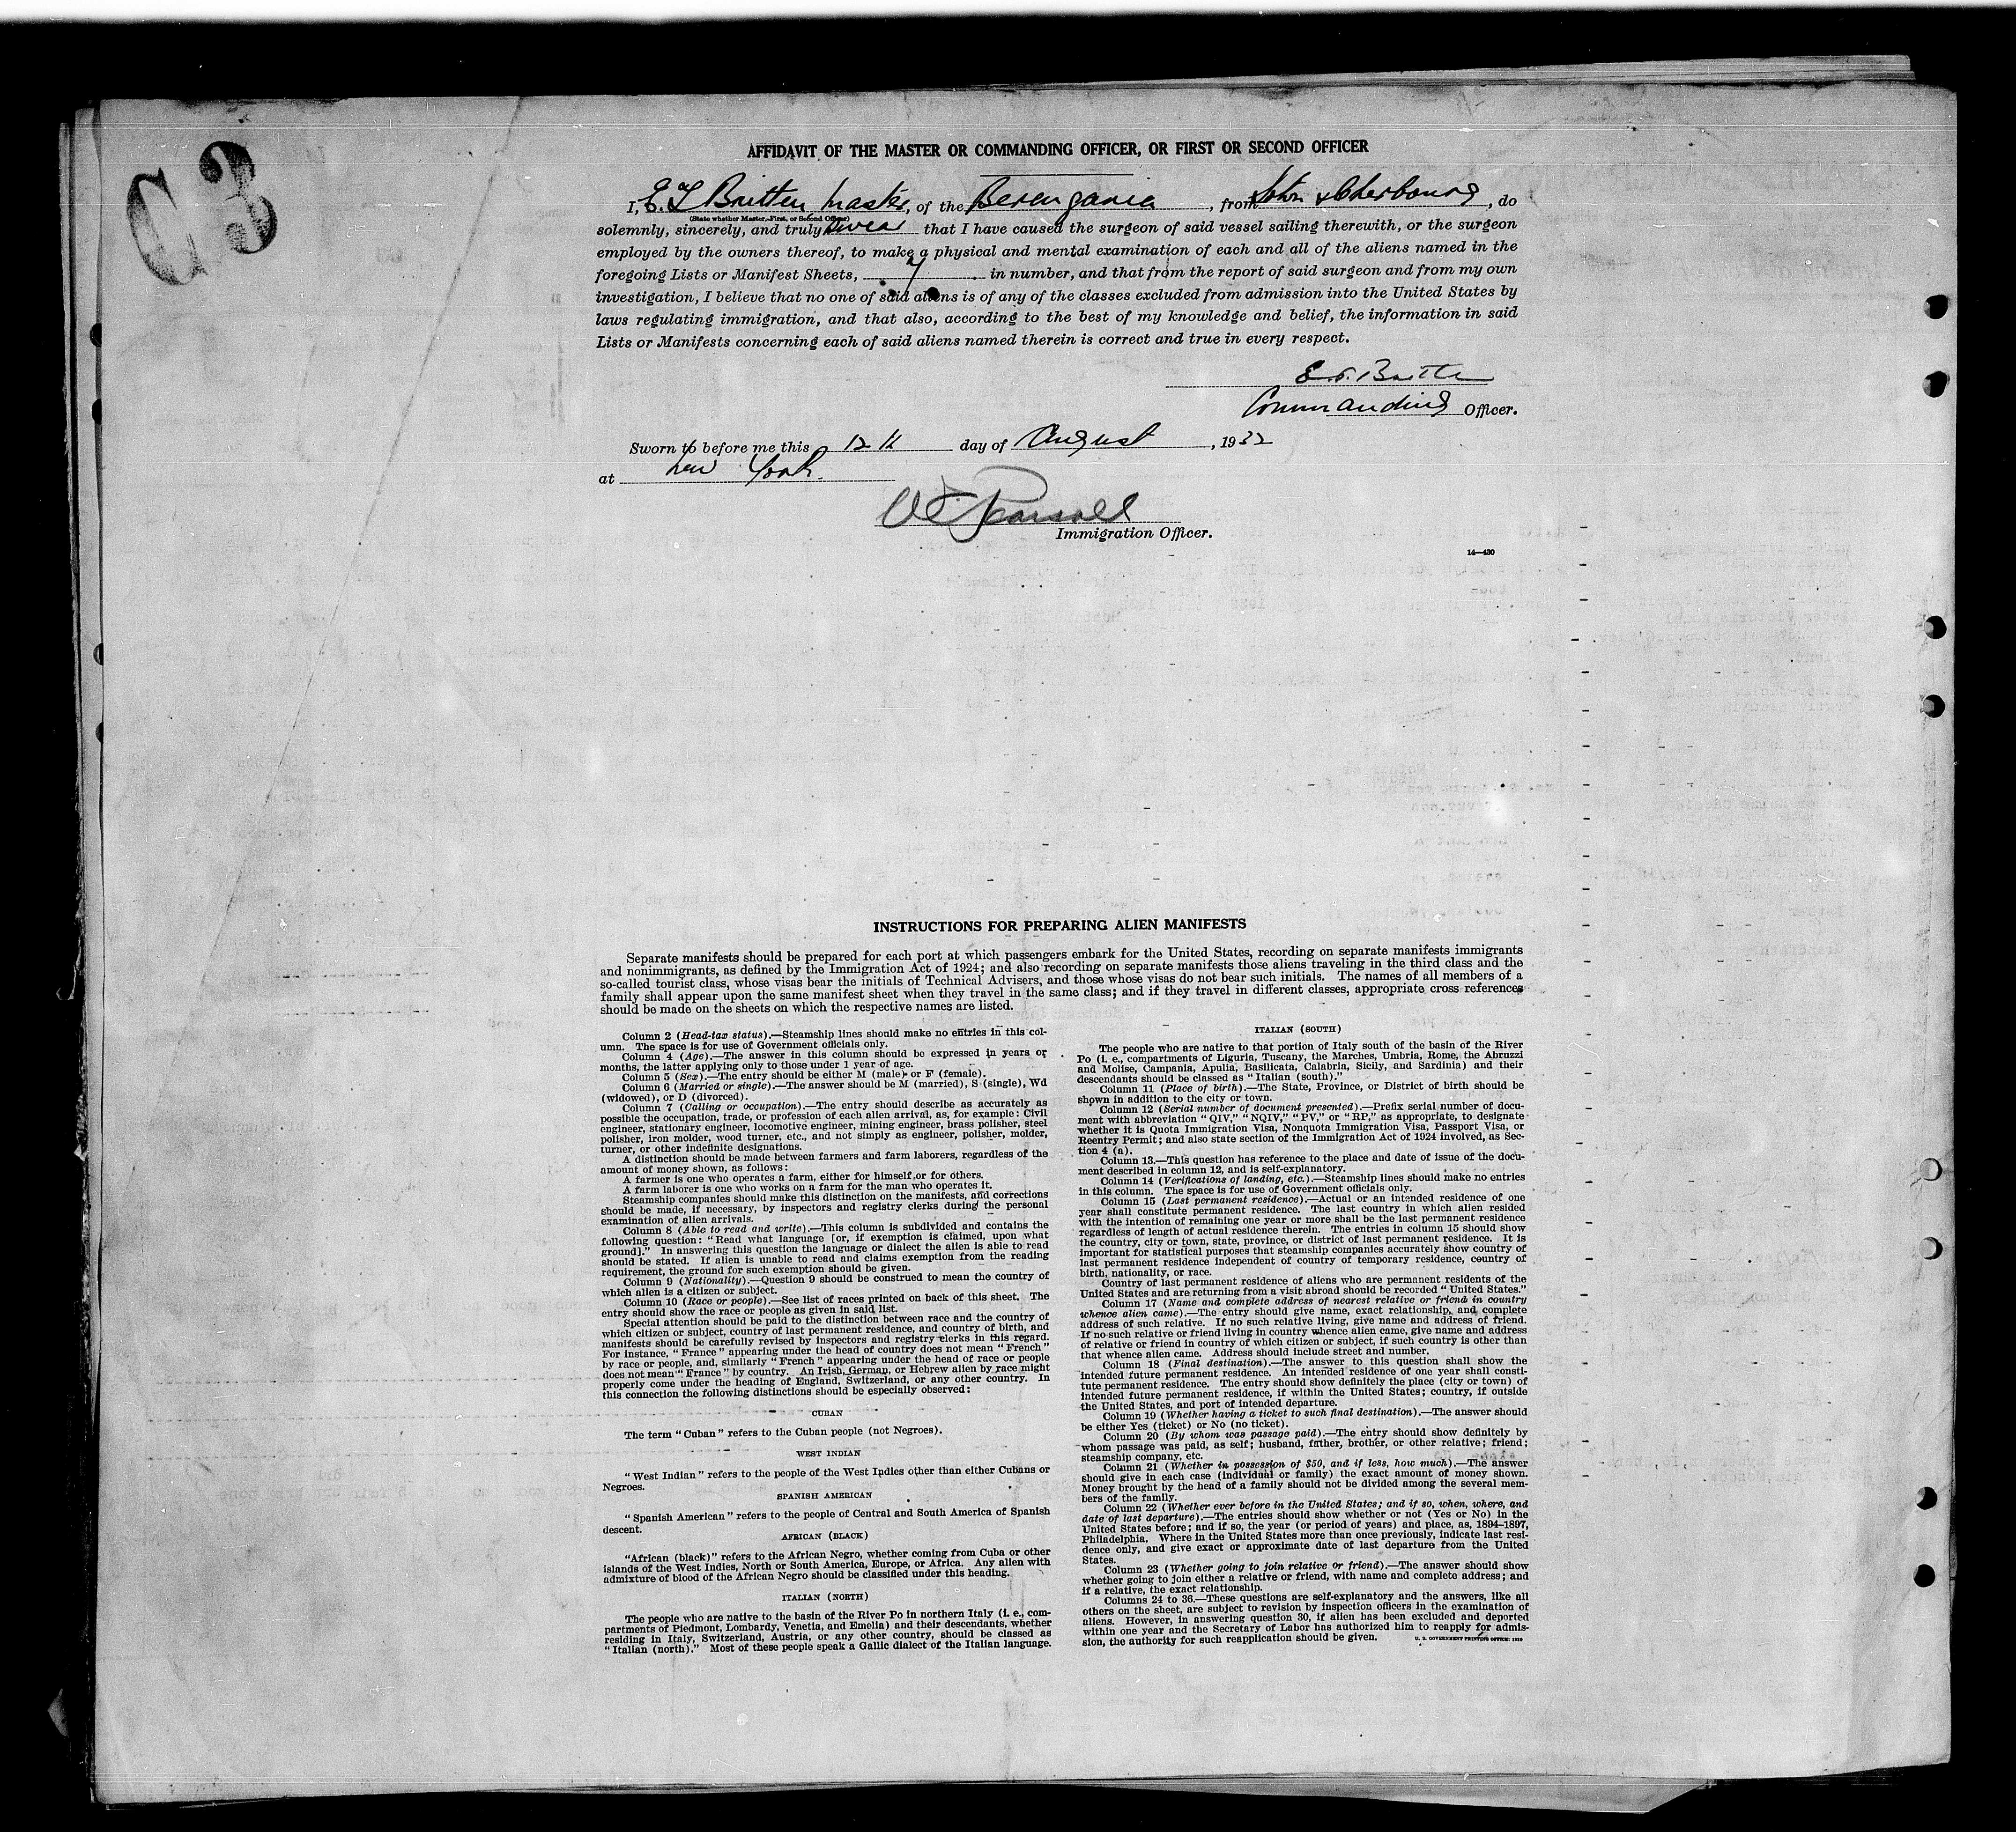 G3
AFFIDAVIT OF THE MASTER OR COMMANDING OFFICER, OR FIRST OR SECOND OFFICER
I, E. T. Britten, Master, of the Berengaria, from Soton & Cherbourg, do
(State whether Master, First, or Second Officer)
solemnly, sincerely, and truly swear that I have caused the surgeon of said vessel sailing therewith, or the surgeon
employed by the owners thereof, to make a physical and mental examination of each and all of the aliens named in the
foregoing Lists or Manifest Sheets, 7 in number, and that from the report of said surgeon and from my own
investigation, I believe that no one of said aliens is of any of the classes excluded from admission into the United States by
laws regulating immigration, and that also, according to the best of my knowledge and belief, the information in said
Lists or Manifests concerning each of said aliens named therein is correct and true in every respect.
E. T. Britten
Commanding Officer.
Sworn to before me this 12th day of August, 1932
at New York.
Immigration Officer.
14—430
INSTRUCTIONS FOR PREPARING ALIEN MANIFESTS
Separate manifests should be prepared for each port at which passengers embark for the United States, recording on separate manifests immigrants
and nonimmigrants, as defined by the Immigration Act of 1924; and also recording on separate manifests those aliens traveling in the third class and the
so-called tourist class, whose visas bear the initials of Technical Advisers, and those whose visas do not bear such initials. The names of all members of a
family shall appear upon the same manifest sheet when they travel in the same class; and if they travel in different classes, appropriate cross references
should be made on the sheets on which the respective names are listed.
Column 2 (Head-tax status).—Steamship lines should make no entries in this col-
umn. The space is for use of Government officials only.
Column 4 (Age).—The answer in this column should be expressed in years or
months, the latter applying only to those under 1 year of age.
Column 5 (Sex).—The entry should be either M (male) or F (female).
Column 6 (Married or single).—The answer should be M (married), S (single), Wd
(widowed), or D (divorced).
Column 7 (Calling or occupation).—The entry should describe as accurately as
possible the occupation, trade, or profession of each alien arrival, as, for example: Civil
engineer, stationary engineer, locomotive engineer, mining engineer, brass polisher, steel
polisher, iron molder, wood turner, etc., and not simply as engineer, polisher, molder,
turner, or other indefinite designations.
A distinction should be made between farmers and farm laborers, regardless of the
amount of money shown, as follows:
A farmer is one who operates a farm, either for himself or for others.
A farm laborer is one who works on a farm for the man who operates it.
Steamship companies should make this distinction on the manifests, and corrections
should be made, if necessary, by inspectors and registry clerks during the personal
examination of alien arrivals.
Column 8 (Able to read and write).—This column is subdivided and contains the
following question: "Read what language [or, if exemption is claimed, upon what
ground]." In answering this question the language or dialect the alien is able to read
should be stated. If alien is unable to read and claims exemption from the reading
requirement, the ground for such exemption should be given.
Column 9 (Nationality).—Question 9 should be construed to mean the country of
which alien is a citizen or subject.
Column 10 (Race or people).—See list of races printed on back of this sheet. The
entry should show the race or people as given in said list.
Special attention should be paid to the distinction between race and the country of
which citizen or subject, country of last permanent residence, and country of birth, and
manifests should be carefully revised by inspectors and registry clerks in this regard.
For instance, "France" appearing under the head of country does not mean "French"
by race or people, and, similarly "French" appearing under the head of race or people
does not mean "France" by country. An Irish, German, or Hebrew alien by race might
properly come under the heading of England, Switzerland, or any other country. In
this connection the following distinctions should be especially observed:
CUBAN
The term "Cuban" refers to the Cuban people (not Negroes).
WEST INDIAN
"West Indian" refers to the people of the West Indies other than either Cubans or
Negroes.
SPANISH AMERICAN
"Spanish American" refers to the people of Central and South America of Spanish
descent.
AFRICAN (BLACK)
"African (black)" refers to the African Negro, whether coming from Cuba or other
islands of the West Indies, North or South America, Europe, or Africa. Any alien with
admixture of blood of the African Negro should be classified under this heading.
ITALIAN (NORTH)
The people who are native to the basin of the River Po in northern Italy (i. e., com-
partments of Piedmont, Lombardy, Venetia, and Emelia) and their descendants, whether
residing in Italy, Switzerland, Austria, or any other country, should be classed as
"Italian (north)." Most of these people speak a Gallic dialect of the Italian language.
ITALIAN (SOUTH)
The people who are native to that portion of Italy south of the basin of the River
Po (i. e., compartments of Liguria, Tuscany, the Marches, Umbria, Rome, the Abruzzi
and Molise, Campania, Apulia, Basilicata, Calabria, Sicily, and Sardinia) and their
descendants should be classed as "Italian (south)."
Column 11 (Place of birth).—The State, Province, or District of birth should be
shown in addition to the city or town.
Column 12 (Serial number of document presented).—Prefix serial number of docu-
ment with abbreviation "QIV," "NQIV," "PV," or "RP," as appropriate, to designate
whether it is Quota Immigration Visa, Nonquota Immigration Visa, Passport Visa, or
Reentry Permit; and also state section of the Immigration Act of 1924 involved, as Sec-
tion 4 (a).
Column 13.—This question has reference to the place and date of issue of the docu-
ment described in column 12, and is self-explanatory.
Column 14 (Verifications of landing, etc.).—Steamship lines should make no entries
in this column. The space is for use of Government officials only.
Column 15 (Last permanent residence).—Actual or an intended residence of one
year shall constitute permanent residence. The last country in which alien resided
with the intention of remaining one year or more shall be the last permanent residence
regardless of length of actual residence therein. The entries in column 15 should show
the country, city or town, state, province, or district of last permanent residence. It is
important for statistical purposes that steamship companies accurately show country of
last permanent residence independent of country of temporary residence, country of
birth, nationality, or race.
Country of last permanent residence of aliens who are permanent residents of the
United States and are returning from a visit abroad should be recorded "United States."
Column 17 (Name and complete address of nearest relative or friend in country
whence alien came).—The entry should give name, exact relationship, and complete
address of such relative. If no such relative living, give name and address of friend.
If no such relative or friend living in country whence alien came, give name and address
of relative or friend in country of which citizen or subject, if such country is other than
that whence alien came. Address should include street and number.
Column 18 (Final destination).—The answer to this question shall show the
intended future permanent residence. An intended residence of one year shall consti-
tute permanent residence. The entry should show definitely the place (city or town) of
intended future permanent residence, if within the United States; country, if outside
the United States, and port of intended departure.
Column 19 (Whether having a ticket to such final destination).—The answer should
be either Yes (ticket) or No (no ticket).
Column 20 (By whom was passage paid).—The entry should show definitely by
whom passage was paid, as self; husband, father, brother, or other relative; friend;
steamship company, etc.
Column 21 (Whether in possession of $50, and if less, how much).—The answer
should give in each case (individual or family) the exact amount of money shown.
Money brought by the head of a family should not be divided among the several mem-
bers of the family.
Column 22 (Whether ever before in the United States; and if so, when, where, and
date of last departure).—The entries should show whether or not (Yes or No) in the
United States before; and if so, the year (or period of years) and place, as, 1894–1897,
Philadelphia. Where in the United States more than once previously, indicate last resi-
dence only, and give exact or approximate date of last departure from the United
States.
Column 23 (Whether going to join relative or friend).—The answer should show
whether going to join either a relative or friend, with name and complete address; and
if a relative, the exact relationship.
Columns 24 to 36.—These questions are self-explanatory and the answers, like all
others on the sheet, are subject to revision by inspection officers in the examination of
aliens. However, in answering question 30, if alien has been excluded and deported
within one year and the Secretary of Labor has authorized him to reapply for admis-
sion, the authority for such reapplication should be given.
U. S. GOVERNMENT PRINTING OFFICE: